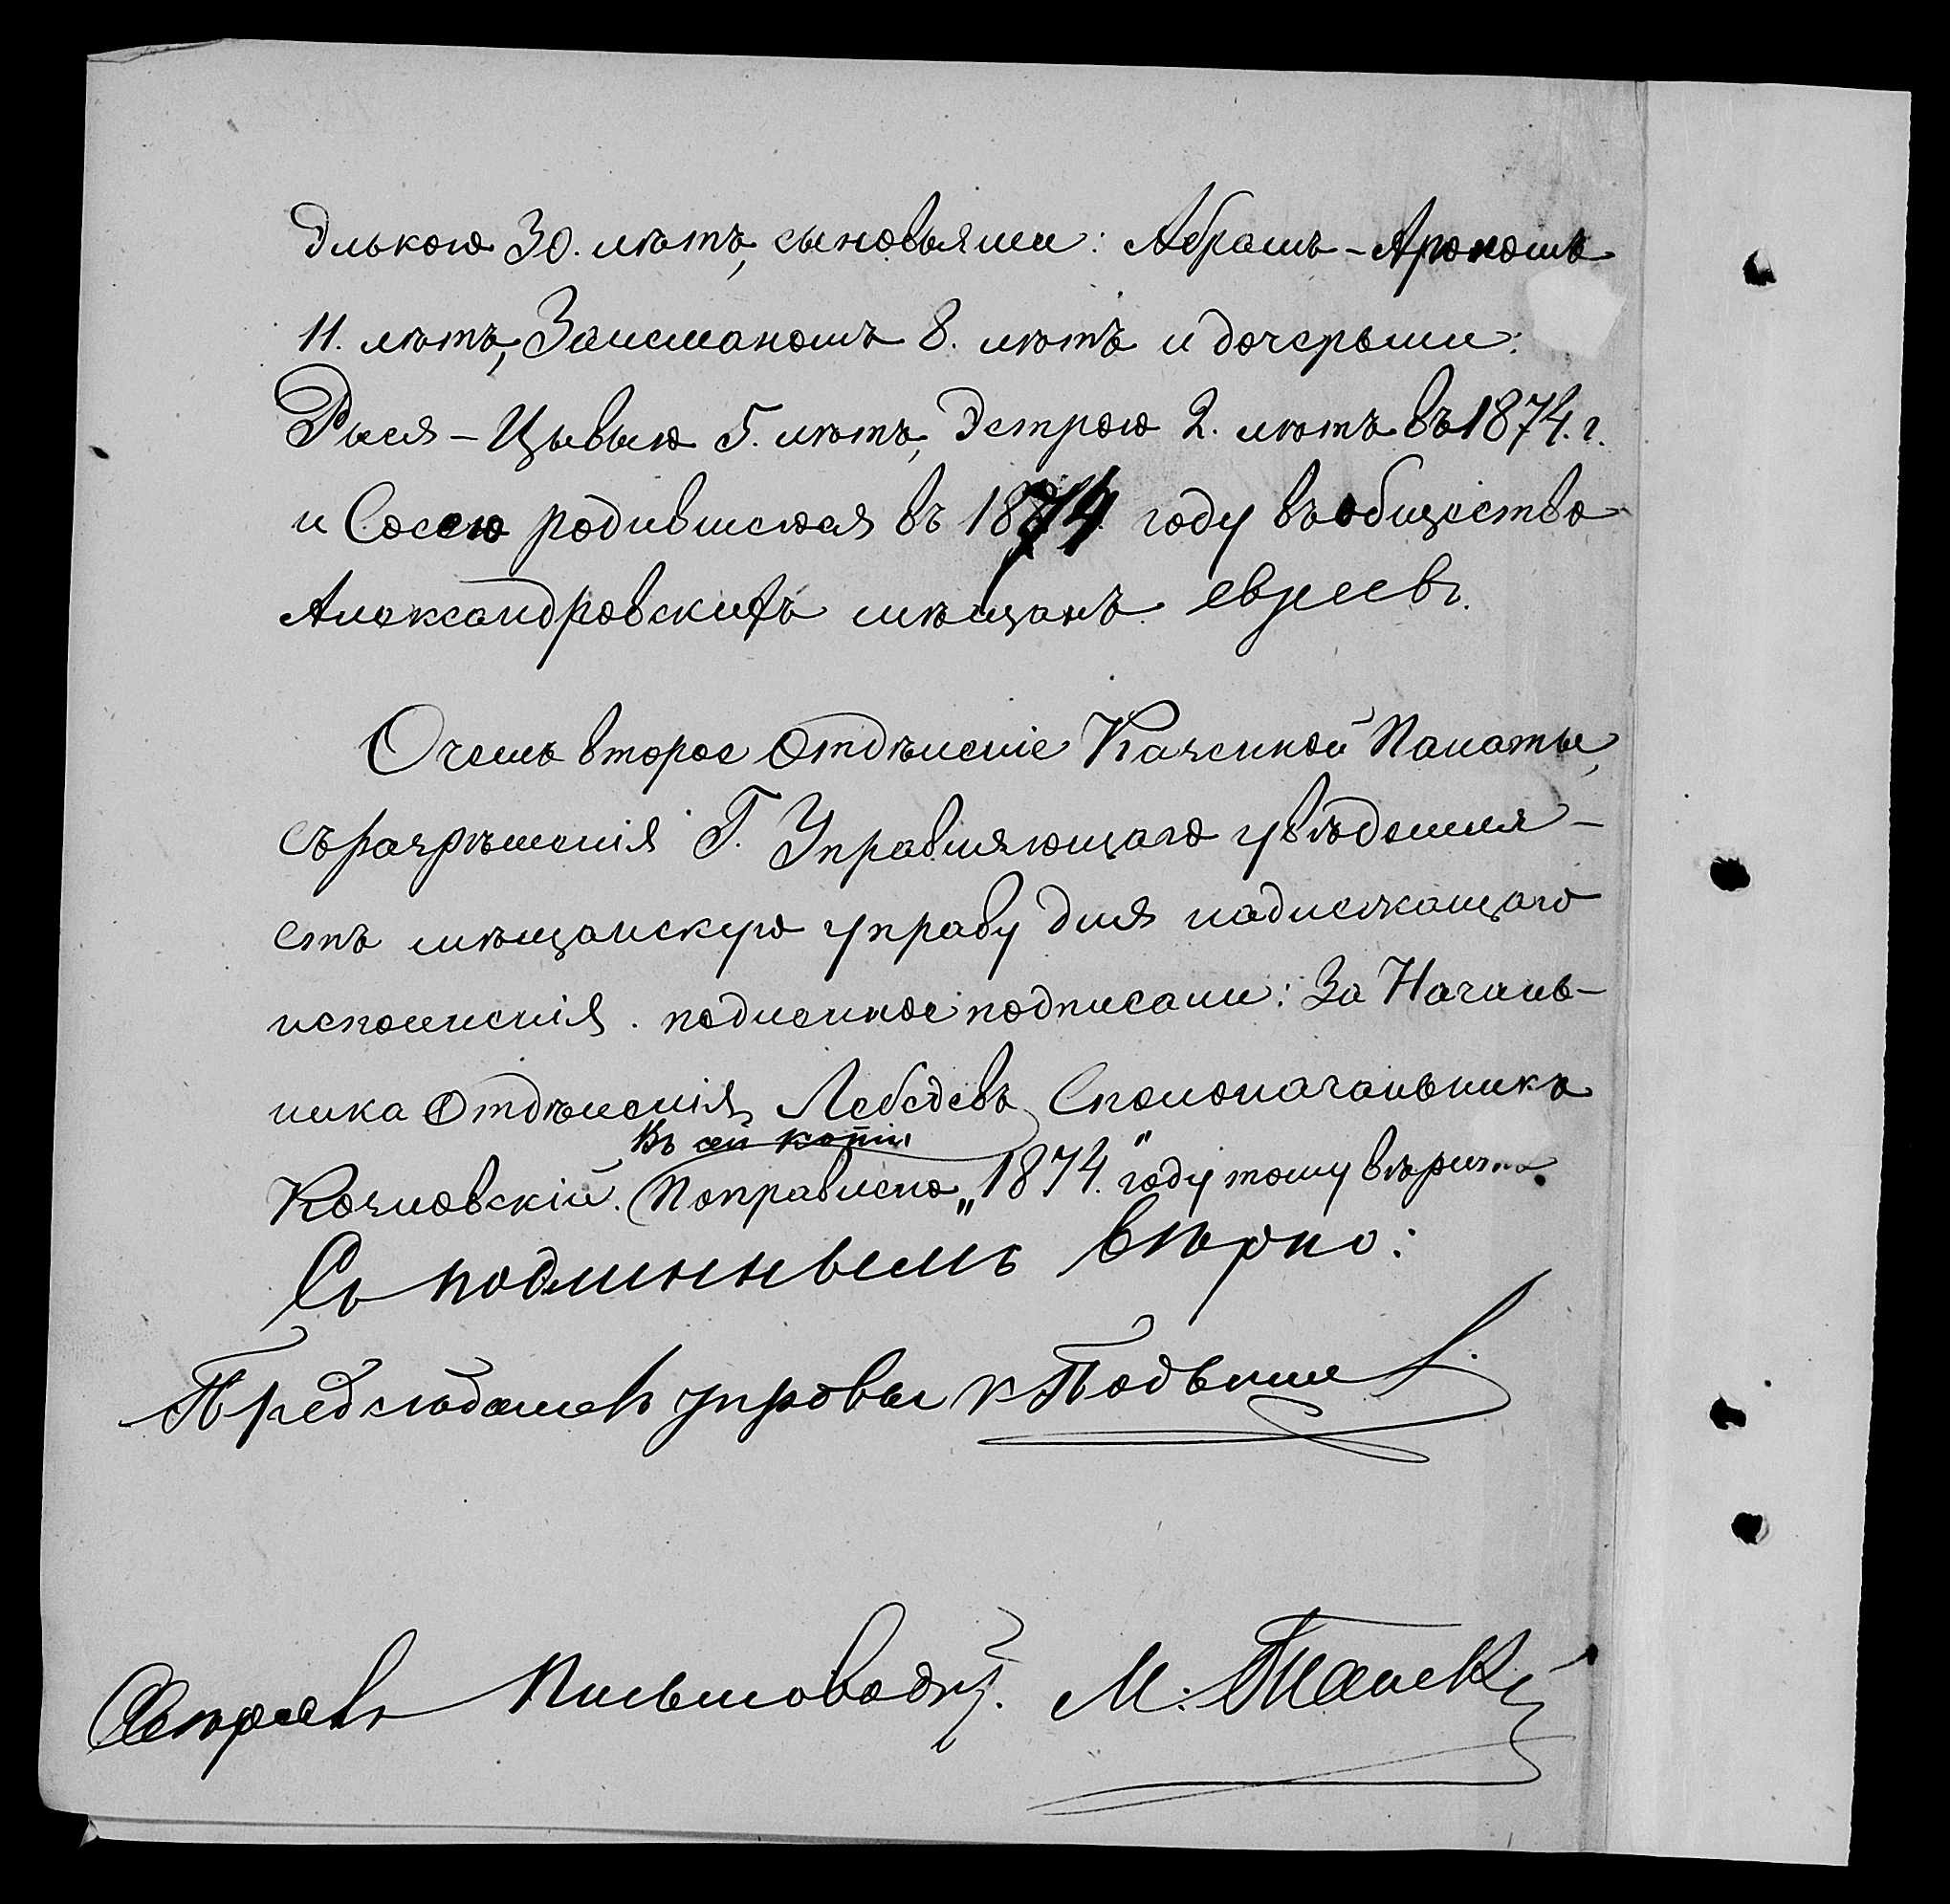 Элькою 30. лѣтъ, сыновьями: Абрамъ-Арономъ
11. лѣтъ, Зансманомъ 8. лѣтъ и дочерьми:
Рыся-Цывью 5. лѣтъ, Эстрою 2. лѣтъ въ 1874. г.
и Сосею родившеюся въ 1874 году въ общество
Александровскихъ мѣщанъ евреевъ.
О чемъ второе Отдѣленіе Казенной Палаты,
съ разрѣшенія Г. Управляющаго увѣдомля-
етъ мѣщанскую управу для надлежащаго
исполненія. подлинное подписали: За Началь-
ника Отдѣленія Лебедевъ, Столоначальникъ
Въ сей копіи
Козловскій. Поправлено „1874.“ году тому вѣрить.
Съ подлиннымъ вѣрно:
Предсѣдатель управы
Свѣрялъ Письмоводи. М.